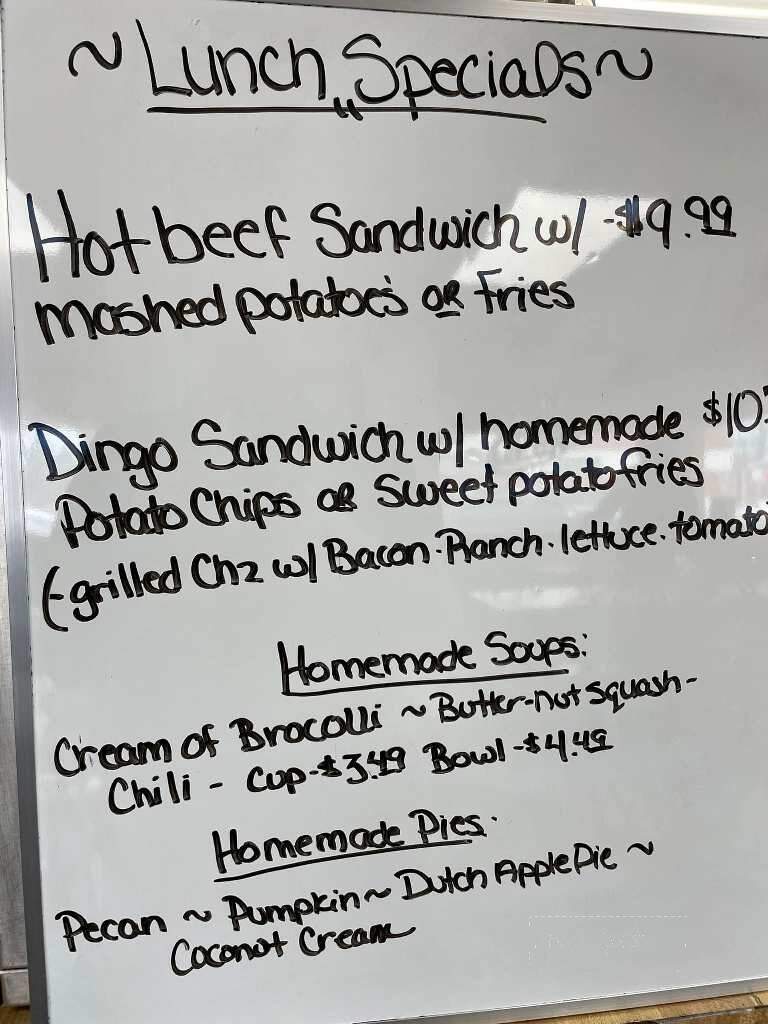 ~ Lunch Specials ~
Hot beef Sandwich w/ -$9.99
mashed potatoe's OR Fries
Dingo Sandwich w/ homemade $10
Potato Chips OR Sweet potato fries
(-grilled Chz w/ Bacon-Ranch-lettuce-tomato
Homemade Soups:
Cream of Brocolli ~ Butter-nut squash -
Chili - Cup-$3.49 Bowl-$4.49
Homemade Pies:
Pecan ~ Pumpkin ~ Dutch Apple Pie ~
Coconut Cream